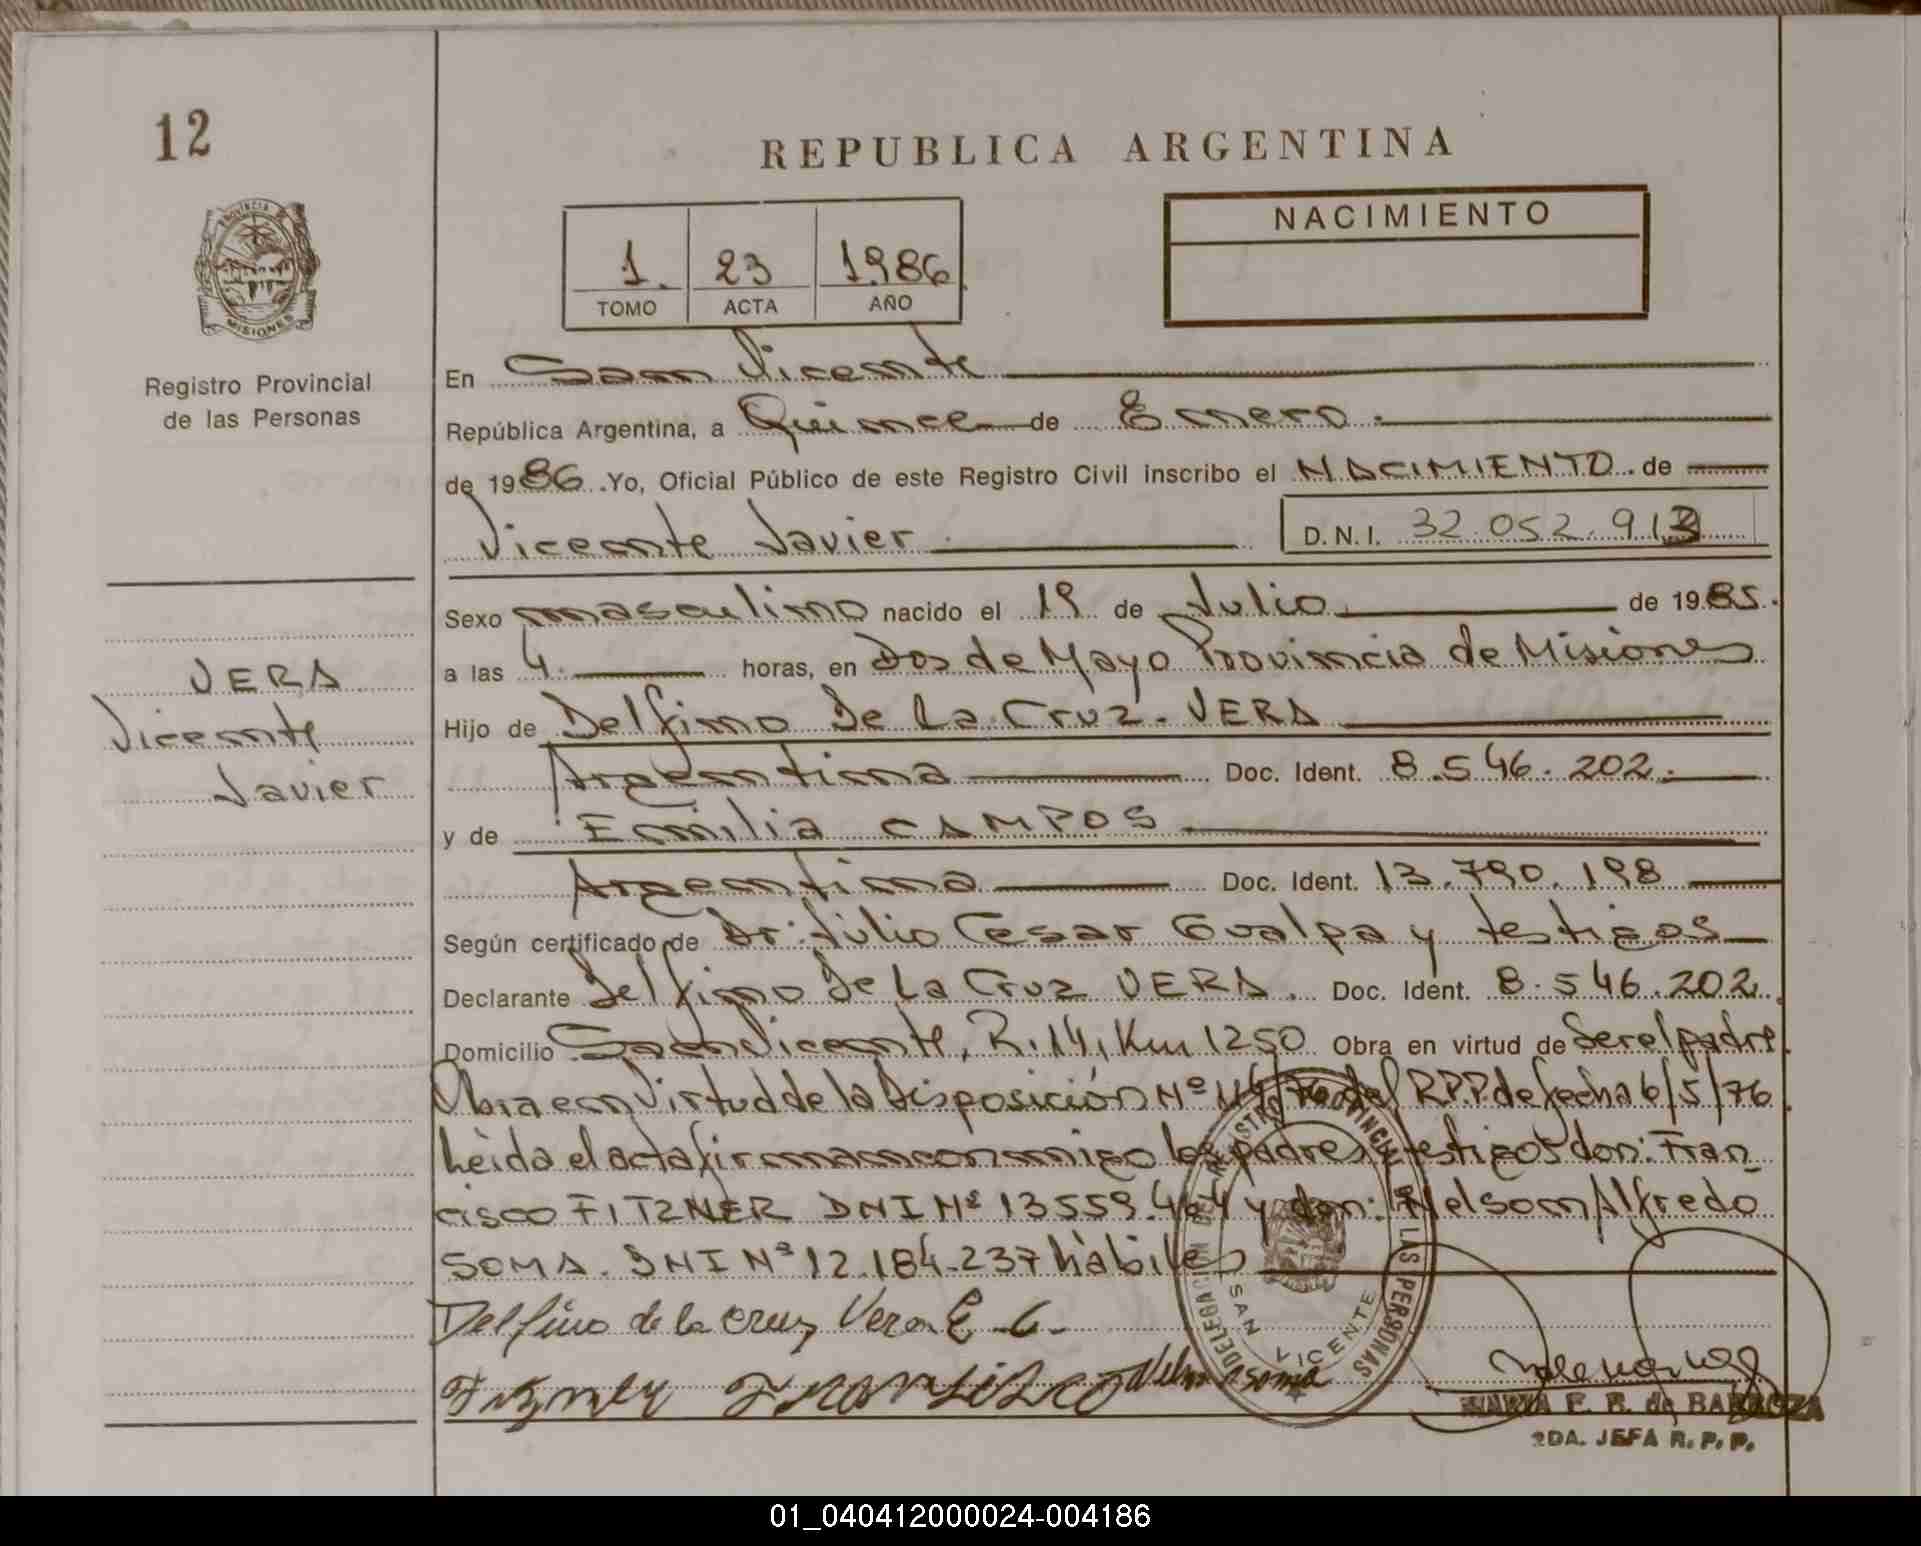 12
REPUBLICA ARGENTINA
PROVINCIA DE
MISIONES
Registro Provincial
de las Personas
1. 23 1986
TOMO ACTA AÑO
NACIMIENTO
En San Vicente
República Argentina, a Quince de Enero.
de 1986. Yo, Oficial Público de este Registro Civil inscribo el NACIMIENTO. de
Vicente Javier
D.N.I. 32.052.913
Sexo masculino nacido el 19 de Julio de 1985.
a las 4. horas, en Dos de Mayo Provincia de Misiones
VERA
Vicente
Javier
Hijo de Delfino De La Cruz. VERA
Argentina Doc. Ident. 8.546.202.
y de Emilia CAMPOS
Argentina Doc. Ident. 13.790.198
Según certificado de Dr. Julio Cesar Gualpa y testigos
Declarante Delfino De La Cruz VERA. Doc. Ident. 8.546.202.
Domicilio San Vicente, R.14, Km 1250 Obra en virtud de Ser el padre.
Obra en Virtud de la Disposición Nº del R.P.P. de fecha 6/5/76.
Leida el acta firman conmigo los padres y testigos don: Fran_
cisco FITZNER DNI Nº 13559.464 y don: Nelson Alfredo
SOMA. DNI Nº 12.184.237 hábiles
Delfino de la cruz Vera E. C.
Francisco Nelson soma
DELEGACION DEL REGISTRO PROVINCIAL DE LAS PERSONAS
SAN VICENTE
MARIA E. B. de BARBOZA
2DA. JEFA R. P. P.
01_040412000024-004186